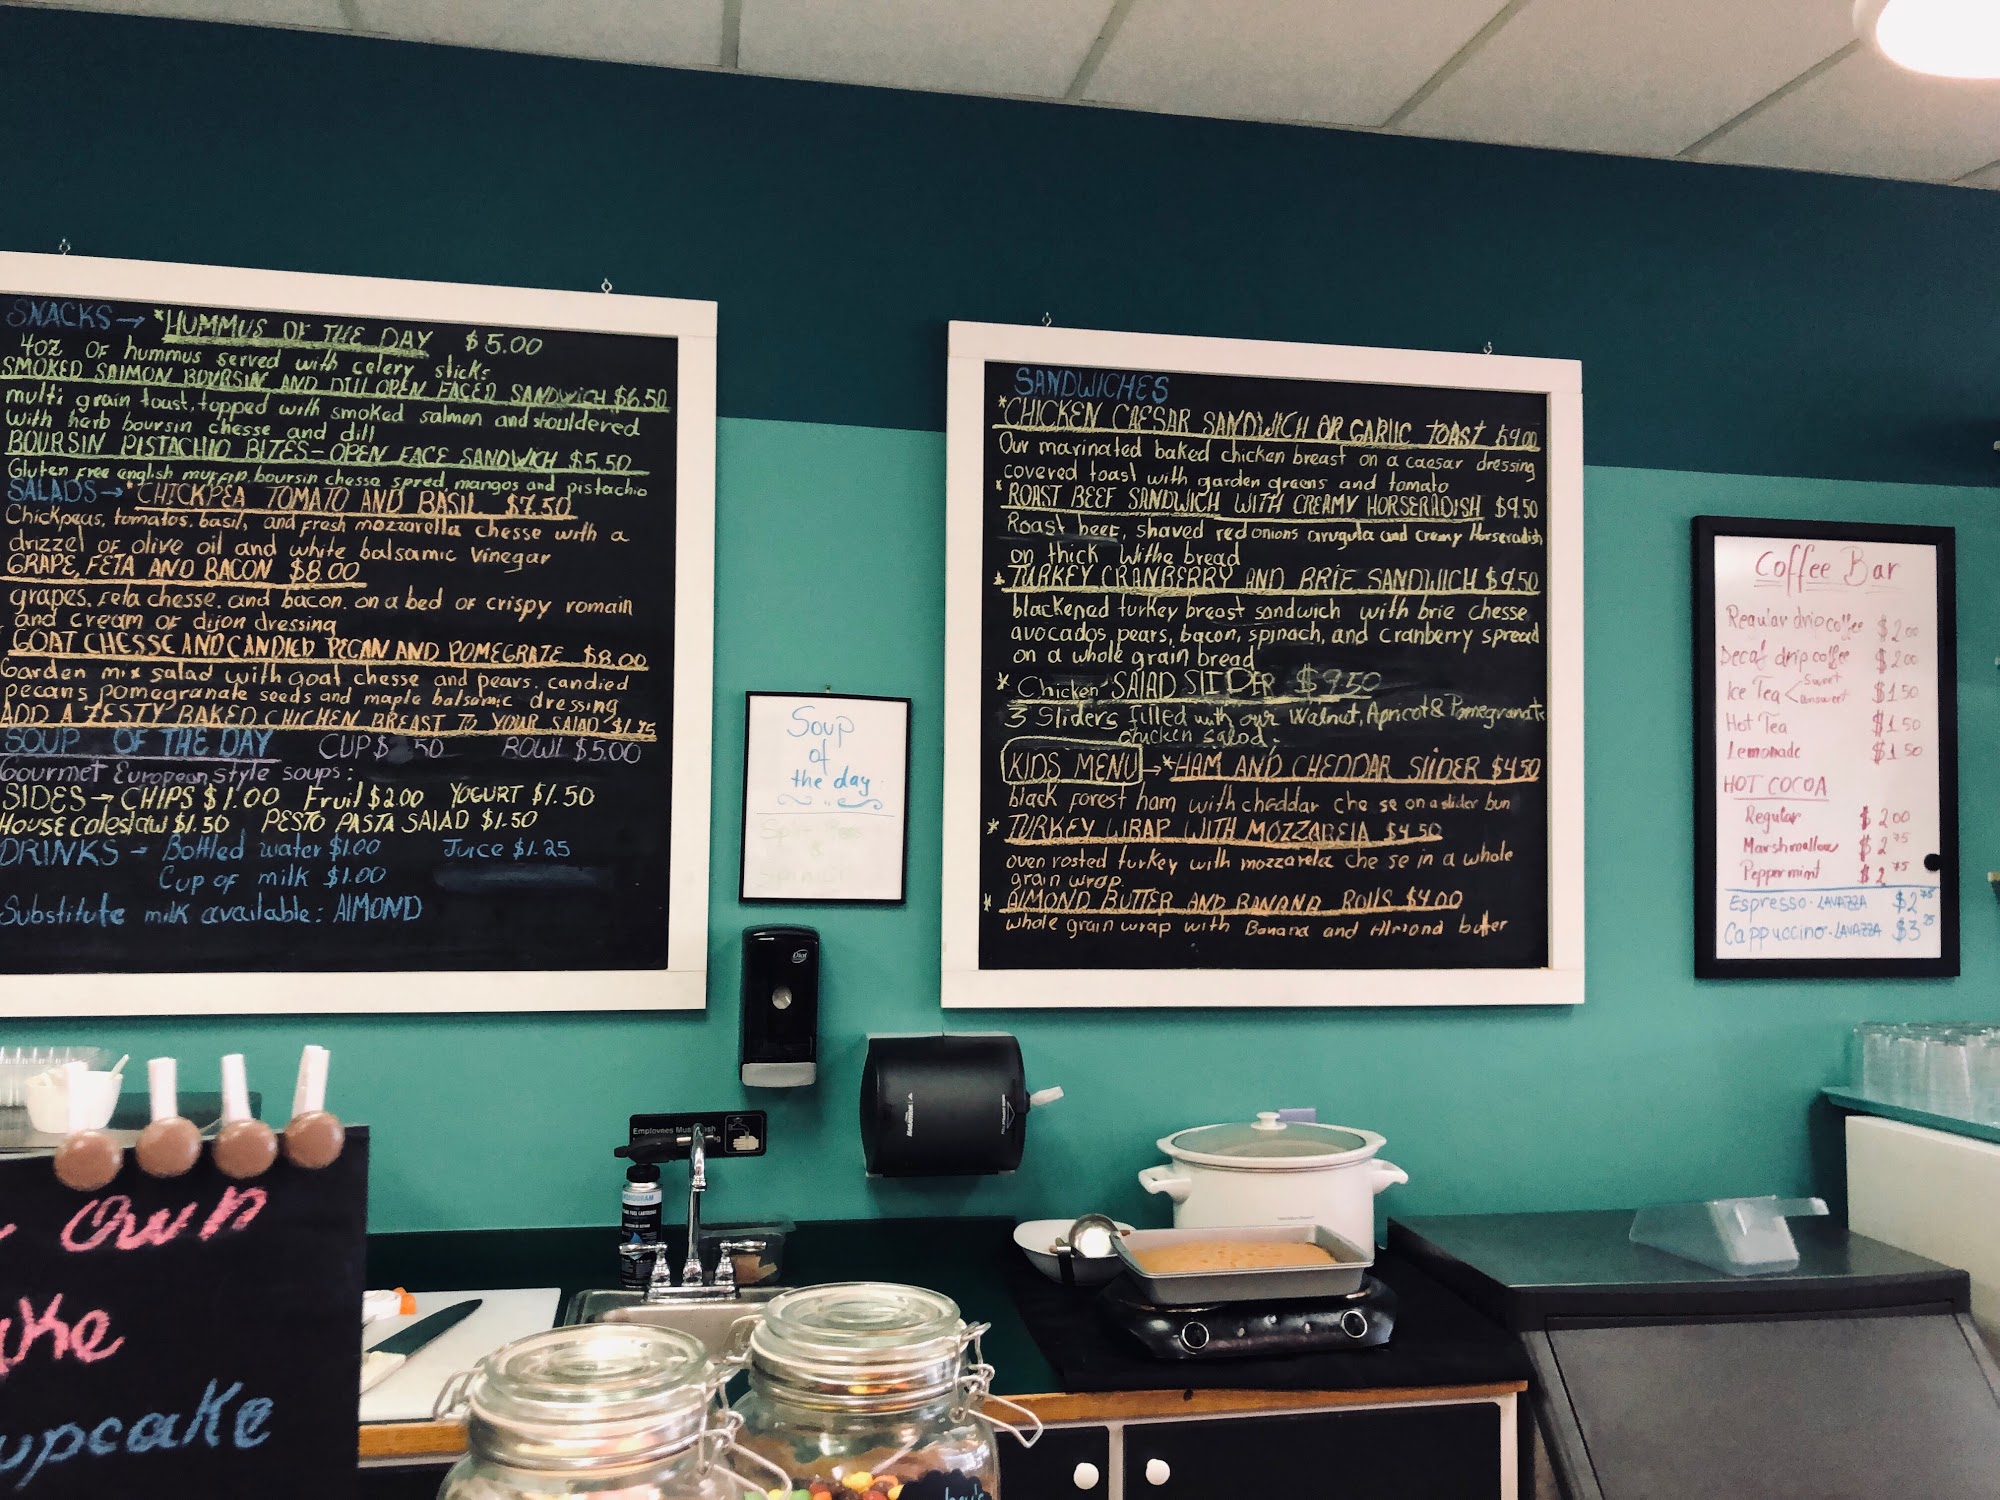 SNACKS → *HUMMUS OF THE DAY $5.00
4oz OF hummus served with celery sticks
SMOKED SALMON BOURSIN AND DILL OPEN FACED SANDWICH $6.50
multi grain toast, topped with smoked salmon and shouldered
with herb boursin chesse and dill
BOURSIN PISTACHIO BITES - OPEN FACE SANDWICH $5.50
Gluten Free english muffin, boursin chesse spred, mangos and pistachio
SALADS → *CHICKPEA TOMATO AND BASIL $7.50
Chickpeas, tomatos, basil, and fresh mozzarella chesse with a
drizzel of olive oil and white balsamic vinegar
GRAPE, FETA AND BACON $8.00
grapes, feta chesse, and bacon, on a bed of crispy romain
and cream of dijon dressing
GOAT CHESSE AND CANDIED PECAN AND POMEGRATE $8.00
Garden mix salad with goat chesse and pears, candied
pecans pomegranate seeds and maple balsamic dressing
ADD A ZESTY BAKED CHICHEN BREAST TO YOUR SALAD $1.75
SOUP OF THE DAY CUP $ 50 BOWL $5.00
Gourmet European style soups:
SIDES → CHIPS $1.00 Fruit $2.00 YOGURT $1.50
HOUSE Coleslaw $1.50 PESTO PASTA SALAD $1.50
DRINKS - Bottled water $1.00 Juice $1.25
Cup of milk $1.00
Substitute milk available: AlMOND
Soup
of
the day
SANDWICHES
*CHICKEN CAESAR SANDWICH OR GARLIC TOAST $9.00
Our marinated baked chicken breast on a caesar dressing
covered toast with garden greens and tomato
*ROAST BEEF SANDWICH WITH CREAMY HORSERADISH $9.50
Roast beef, shaved red onions arugula and creamy Horseradish
on thick withe bread
*TURKEY CRANBERRY AND BRIE SANDWICH $9.50
blackened turkey breast sandwich with brie chesse
avocados, pears, bacon, spinach, and cranberry spread
on a whole grain bread
*Chicken SALAD SLIDER $9.50
3 Sliders filled with our Walnut, Apricot & Pomegranate
chicken salad.
KIDS MENU → *HAM AND CHEDDAR SliDER $4.50
black forest ham with cheddar che se on a slider bun
*TURKEY WRAP WITH MOZZARElA $4.50
oven rosted turkey with mozzarela che se in a whole
grain wrap
*AlMOND BUTTER AND BANANA ROllS $4.00
whole grain wrap with Banana and Almond butter
Coffee Bar
Regular drip coffee $2.00
Decaf drip coffee $2.00
Ice Tea < Sweet unsweet $1.50
Hot Tea $1.50
Lemonade $1.50
HOT COCOA
Regular $2.00
Marshmallow $2.75
Peppermint $2.75
Espresso - LAVAZZA $2.75
Cappuccino - LAVAZZA $3.25
Dial
Employees Must
Own
upcake